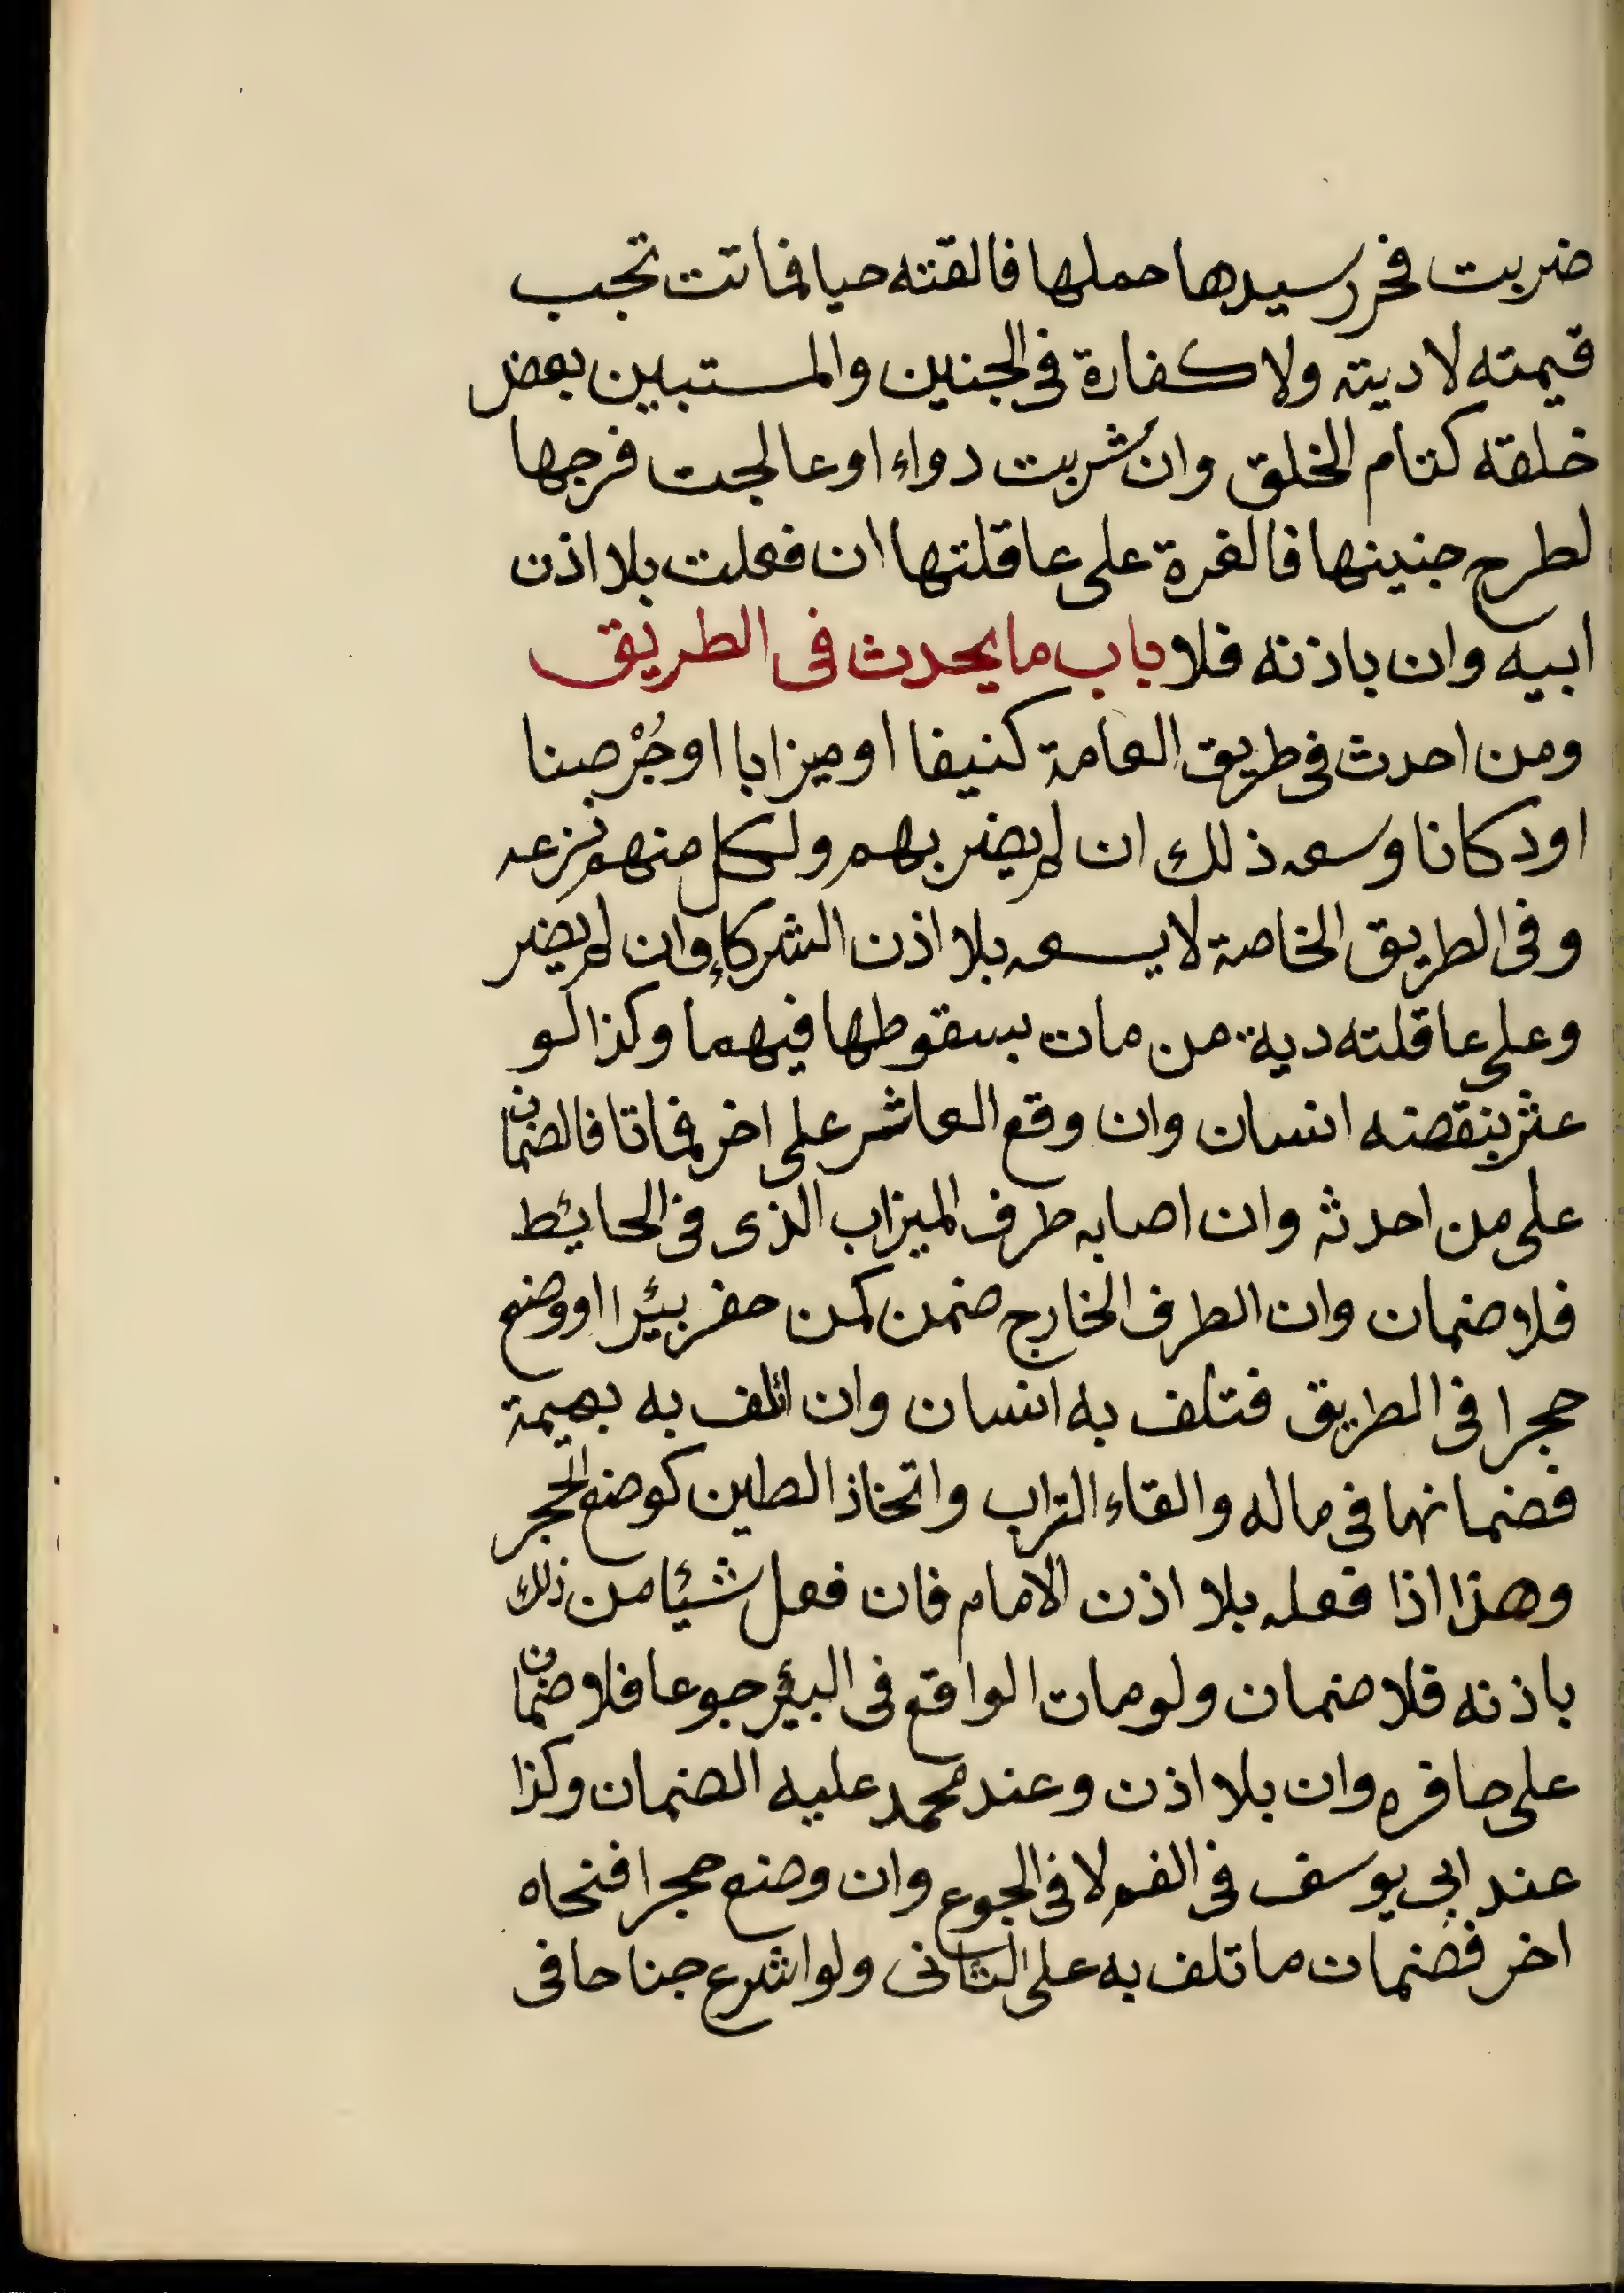 ضربت فحرر سيدها حملها فالقته حيا فماتت تجب
قيمته لا ديته ولا كفارة فى الجنين والمستبين بعض
خلقه كتام الخلق وان شربت دواء او عالجت فرجها
لطرح جنينها فالغرة على عاقلتها ان فعلت بلا اذن
ابيه وان باذنه فلا باب ما يحدث فى الطريق
ومن احدث فى طريق العامة كنيفا او ميزابا او جُرْصنا
او دكانا وسعه ذلك ان لم يضر بهم ولكل منهم نزعه
وفى الطريق الخاصة لا يسعه بلا اذن الشركاء وان لم يضر
وعلى عاقلته دية من مات بسقوطها فيهما وكذا لو
عثر بنقضه انسان وان وقع العاثر على اخر فماتا فالضمان
على من احدثه وان اصابه طرف الميزاب الذى فى الحائط
فلا ضمان وان الطرف الخارج ضمن كمن حفر بئيرا او وضع
حجرا فى الطريق فتلف به انسان وان اتلف به بهيمة
فضمانها فى ماله والقاء التراب واتخاذ الطين كوضع الحجر
وهذا اذا فعله بلا اذن الامام فان فعل شيئا من ذلك
باذنه فلا ضمان ولو مات الواقع فى البئير جوعا فلا ضمان
على حافره وان بلا اذن وعند محمد عليه الضمان وكذا
عند ابى يوسف فى الغم لا فى الجوع وان وضع حجرا فنحاه
اخر فضمان ما تلف به على الثانى ولو اشرع جناحا فى